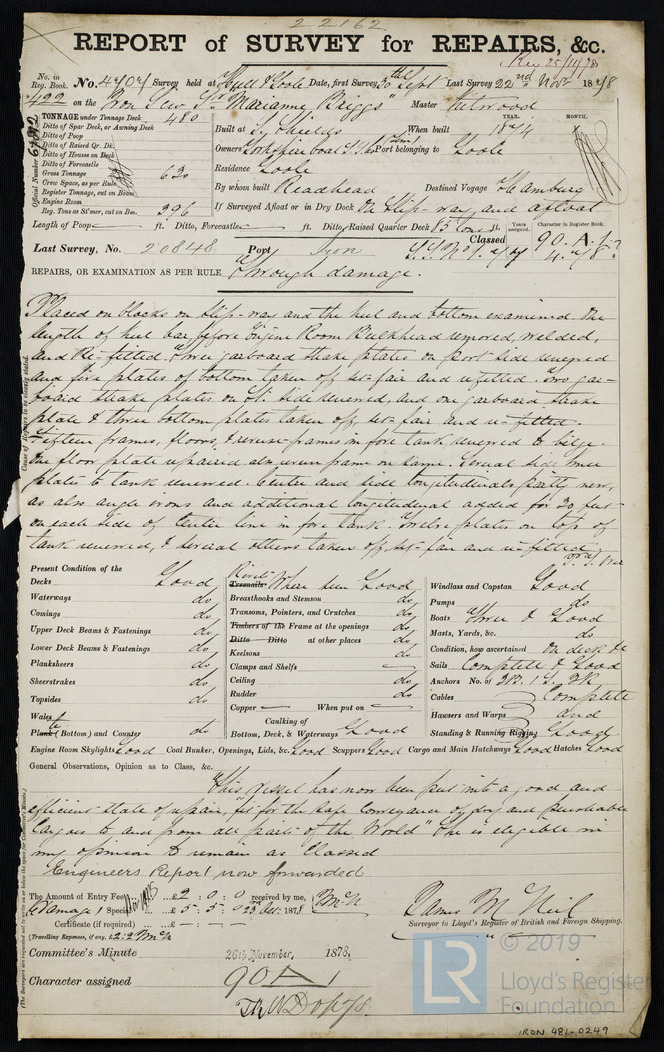 22162
REPORT of SURVEY for REPAIRS, &c.
Rec 25/11/78
No. in Reg. Book. No. 4404 Survey held at Hull & Goole Date, first Survey 30th Sept Last Survey 22nd Nov 1878
422 on the Iron Screw Sr. "Marianne Briggs" Master
TONNAGE under Tonnage Deck 480
Ditto of Spar Deck, or Awning Deck
Ditto of Poop
Ditto of Raised Qr. Dk.
Ditto of Houses on Deck
Ditto of Forecastle
Gross Tonnage 630
Crew Space, as per Rule
Register Tonnage, cut on Beam
Engine Room
Reg. Tons as St'mer, cut on Bm. 396
Official Number
Built at S. Shields When built 1874
YEAR. MONTH.
Owners Yorkshire Coal S.S. Co Limd Port belonging to Goole
Residence Goole
By whom built Readhead Destined Voyage Hamburg
If Surveyed Afloat or in Dry Dock On Slip-way and afloat
Length of Poop ft. Ditto, Forecastle ft. Ditto, Raised Quarter Deck ft.
Years assigned. Character in Register Book.
Last Survey, No. 20848 Port Iron Classed 90.A.1.
REPAIRS, OR EXAMINATION AS PER RULE Through damage.
Cause of Repairs to be clearly stated.
Placed on blocks on slip-way and the keel and bottom examined. The
length of keel bar before Engine Room Bulkhead removed, welded,
and Re-fitted. Three garboard strake plates on port side renewed
and five plates of bottom taken off set-fair and refitted. Two gar-
board strake plates on St. side renewed, and one garboard strake
plate & three bottom plates taken off, set-fair and re-fitted.
Fifteen frames, floors, & reverse-frames in fore tank renewed to bilge.
One floor plate repaired also reverse frame on same. Several side
plates to tank renewed. Center and side longitudinals partly new,
as also angle irons and additional longitudinal added for 30 feet
on each side of Center line in fore tank. Twelve plates on top of
tank renewed, & several others taken off, set-fair and re-fitted.
Present Condition of the
Decks Good
Waterways do
Comings do
Upper Deck Beams & Fastenings do
Lower Deck Beams & Fastenings do
Planksheers do
Sheerstrakes do
Topsides do
Wales
Plank (Bottom) and Counter do
Rivets
Treenails When seen Good
Breasthooks and Stemson do
Transoms, Pointers, and Crutches do
Timbers of the Frame at the openings do
Ditto Ditto at other places do
Keelsons do
Clamps and Shelfs
Ceiling do
Rudder do
Copper When put on
Caulking of
Bottom, Deck, & Waterways Good
Windlass and Capstan Good
Pumps do
Boats Three & Good
Masts, Yards, &c. do
Condition, how ascertained On deck &c
Sails Complete & Good
Anchors No. of 3B. 1S. 2K
Cables Complete
Hausers and Warps and
Standing & Running Rigging Good
Engine Room Skylights Good Coal Bunker, Openings, Lids, &c. Good Scuppers Good Cargo and Main Hatchways Good Hatches Good
General Observations, Opinion as to Class, &c.
This vessel has now been put into a good and
efficient state of repair, "fit for the safe Conveyance of dry and perishable
Cargoes to and from all parts of the World" She is eligible in
my opinion to remain as Classed
Engineers Report now forwarded
The Amount of Entry Fee ... £2 : 0 : 0 received by me,
Damage Special ... £5 : 5 : 0 1878
Certificate (if required) ... £
(Travelling Expenses, if any, £2.2
James McNeil
Surveyor to Lloyd's Register of British and Foreign Shipping.
Committee's Minute 26th November, 1878.
Character assigned 90 A 1
© 2019
LR
Lloyd's Register
Foundation
IRON 481-0249